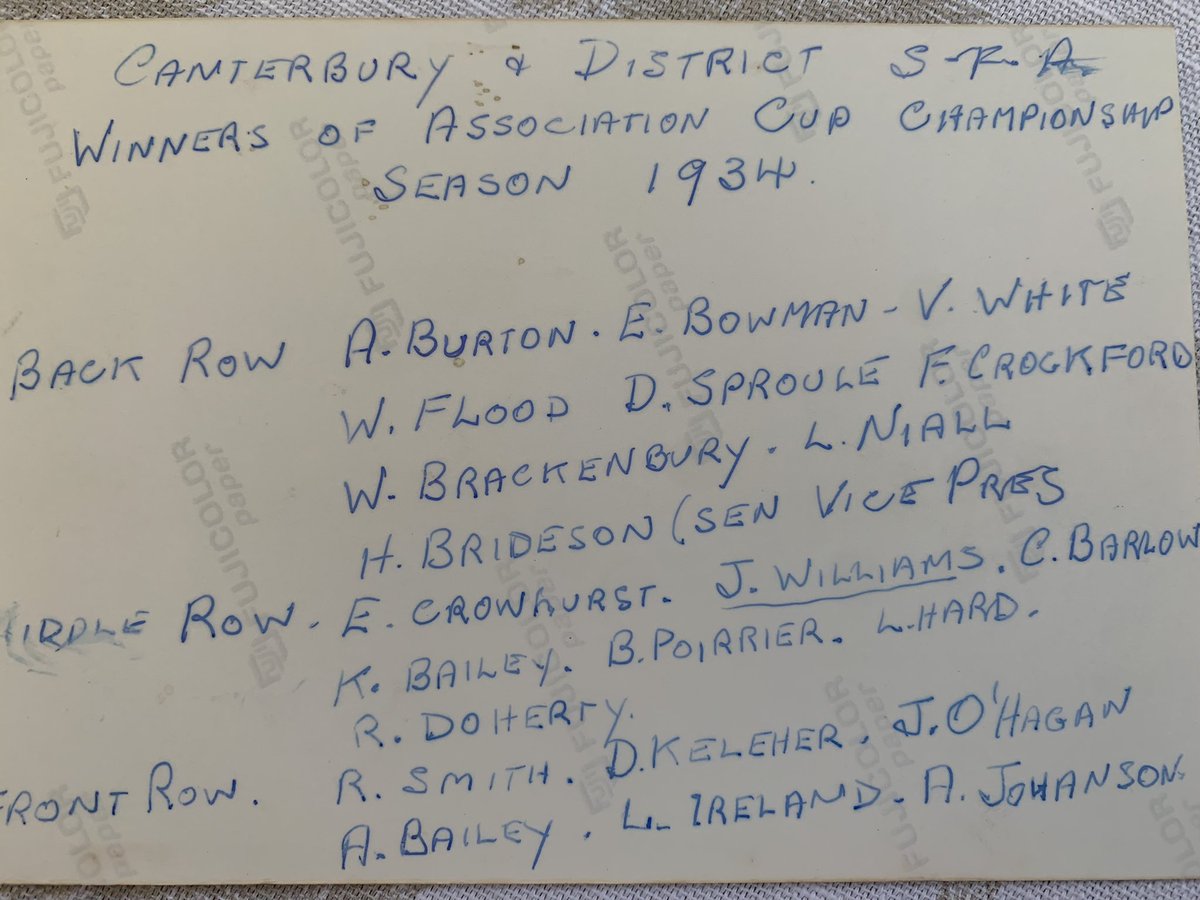 CANTERBURY & DISTRICT S.R.A.
WINNERS OF ASSOCIATION CUP CHAMPIONSHIP
SEASON 1934.
BACK ROW A. BURTON. E. BOWMAN - V. WHITE
W. FLOOD D. SPROULE F. CROCKFORD
W. BRACKENBURY. L. NIALL
H. BRIDESON (SEN VICE PRES
MIDDLE ROW. E. CROWHURST. J. WILLIAMS. C. BARLOW
K. BAILEY. B. POIRRIER. L. HARD.
R. DOHERTY.
FRONT ROW. R. SMITH. D. KELEHER. J. O'HAGAN
A. BAILEY. L. IRELAND. A. JOHANSON.
FUJICOLOR
paper